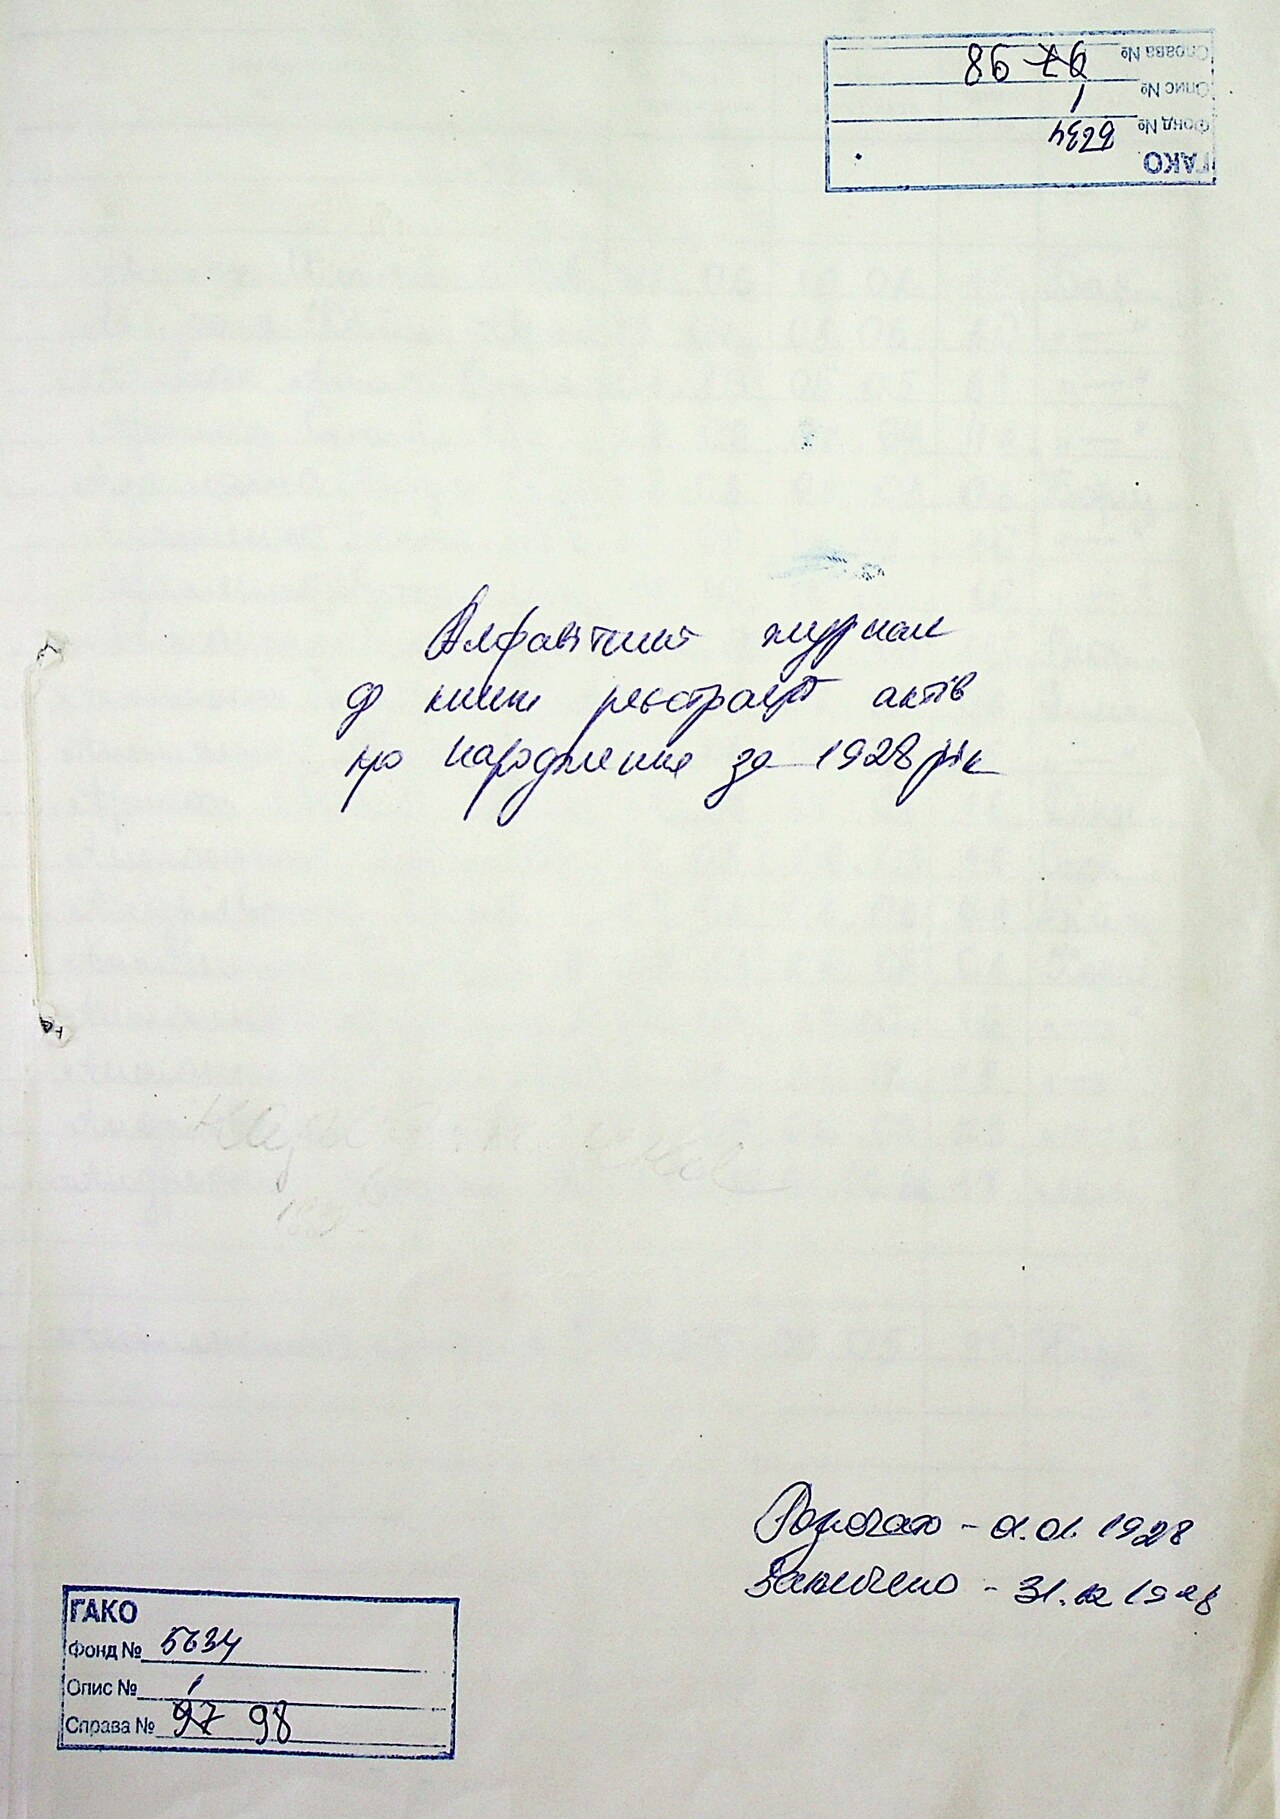 Справа № 97 98
Опис № 1
Фонд № 5634
ГАКО
Алфавітний журнал
до книги реєстрації актів
про народження за 1928 рік
Розпочато - 01.01.1928
Закінчено - 31.12.1928
ГАКО
Фонд № 5634
Опис № 1
Справа № 97 98